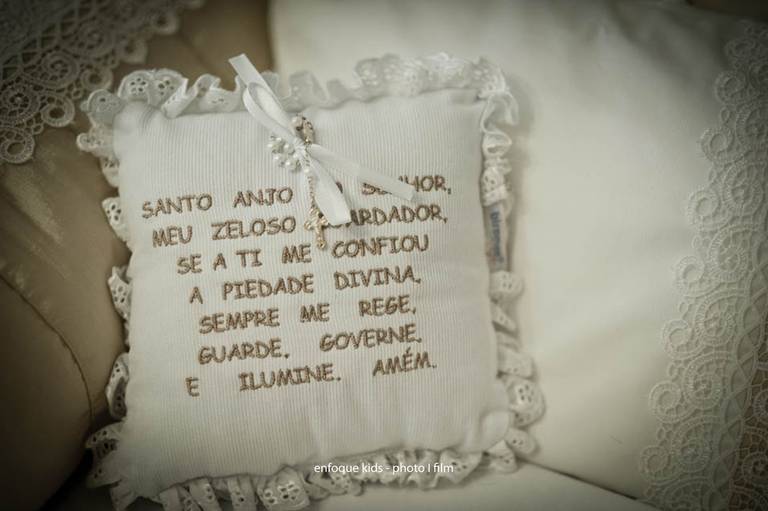 SANTO ANJO
MEU ZELOSO
SE A TI ME CONFIOU
A PIEDADE DIVINA,
SEMPRE ME REGE,
GUARDE, GOVERNE,
E ILUMINE. AMÉM.
enfoque kids - photo I film